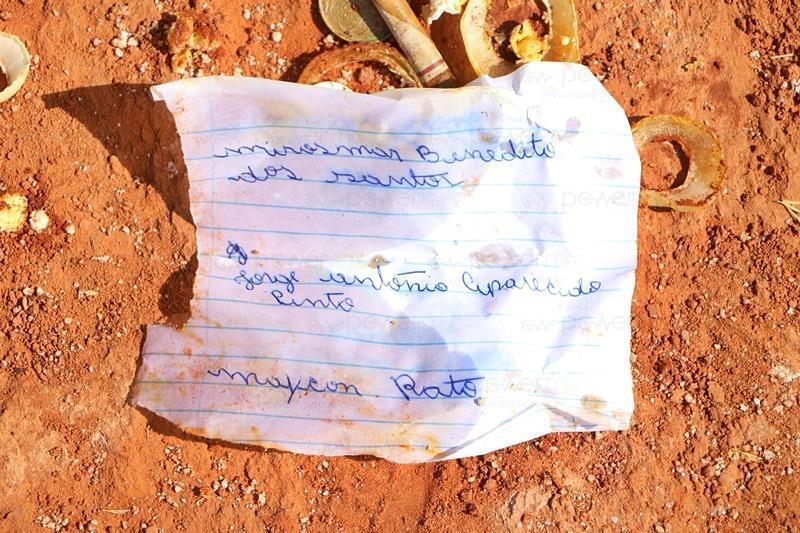 mirosmar Benedito
dos santos
Jorge antônio Aparecido
Pinto
maycon Rato